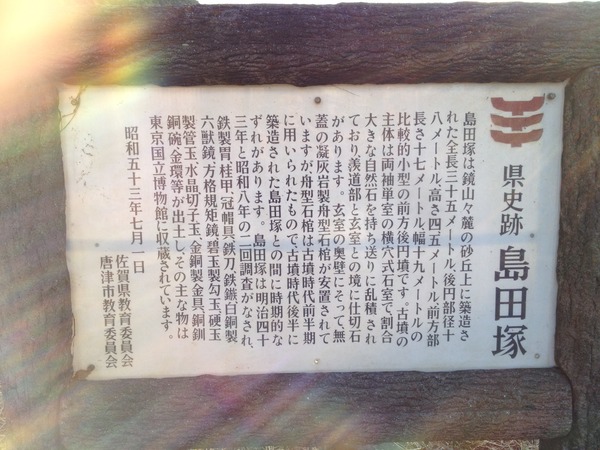 県史跡 島田塚
島田塚は鏡山々麓の砂丘上に築造さ
れた全長三十五メートル、後円部径十
八メートル、高さ四・五メートル、前方部
長さ十七メートル、幅十九メートルの
比較的小型の前方後円墳です。古墳の
主体は両袖単室の横穴式石室で、割合
大きな自然石を持ち送りに乱積され
ており、羨道部と玄室との境に仕切石
があります。玄室の奥壁にそって、無
蓋の凝灰岩製舟型石棺が安置されて
いますが、舟型石棺は古墳時代前半期
に用いられたもので、古墳時代後半に
築造された島田塚との間に時期的な
ずれがあります。島田塚は明治四十
三年と昭和八年の二回調査がなされ、
鉄製冑、桂甲、冠帽具、鉄刀、鉄鏃、白銅製
六獣鏡、方格規矩鏡、碧玉製勾玉、硬玉
製管玉、水晶切子玉、金銅製金具、銅釧
銅碗、金環等が出土し、その主な物は
東京国立博物館に収蔵されています。
昭和五十三年七月一日
佐賀県教育委員会
唐津市教育委員会